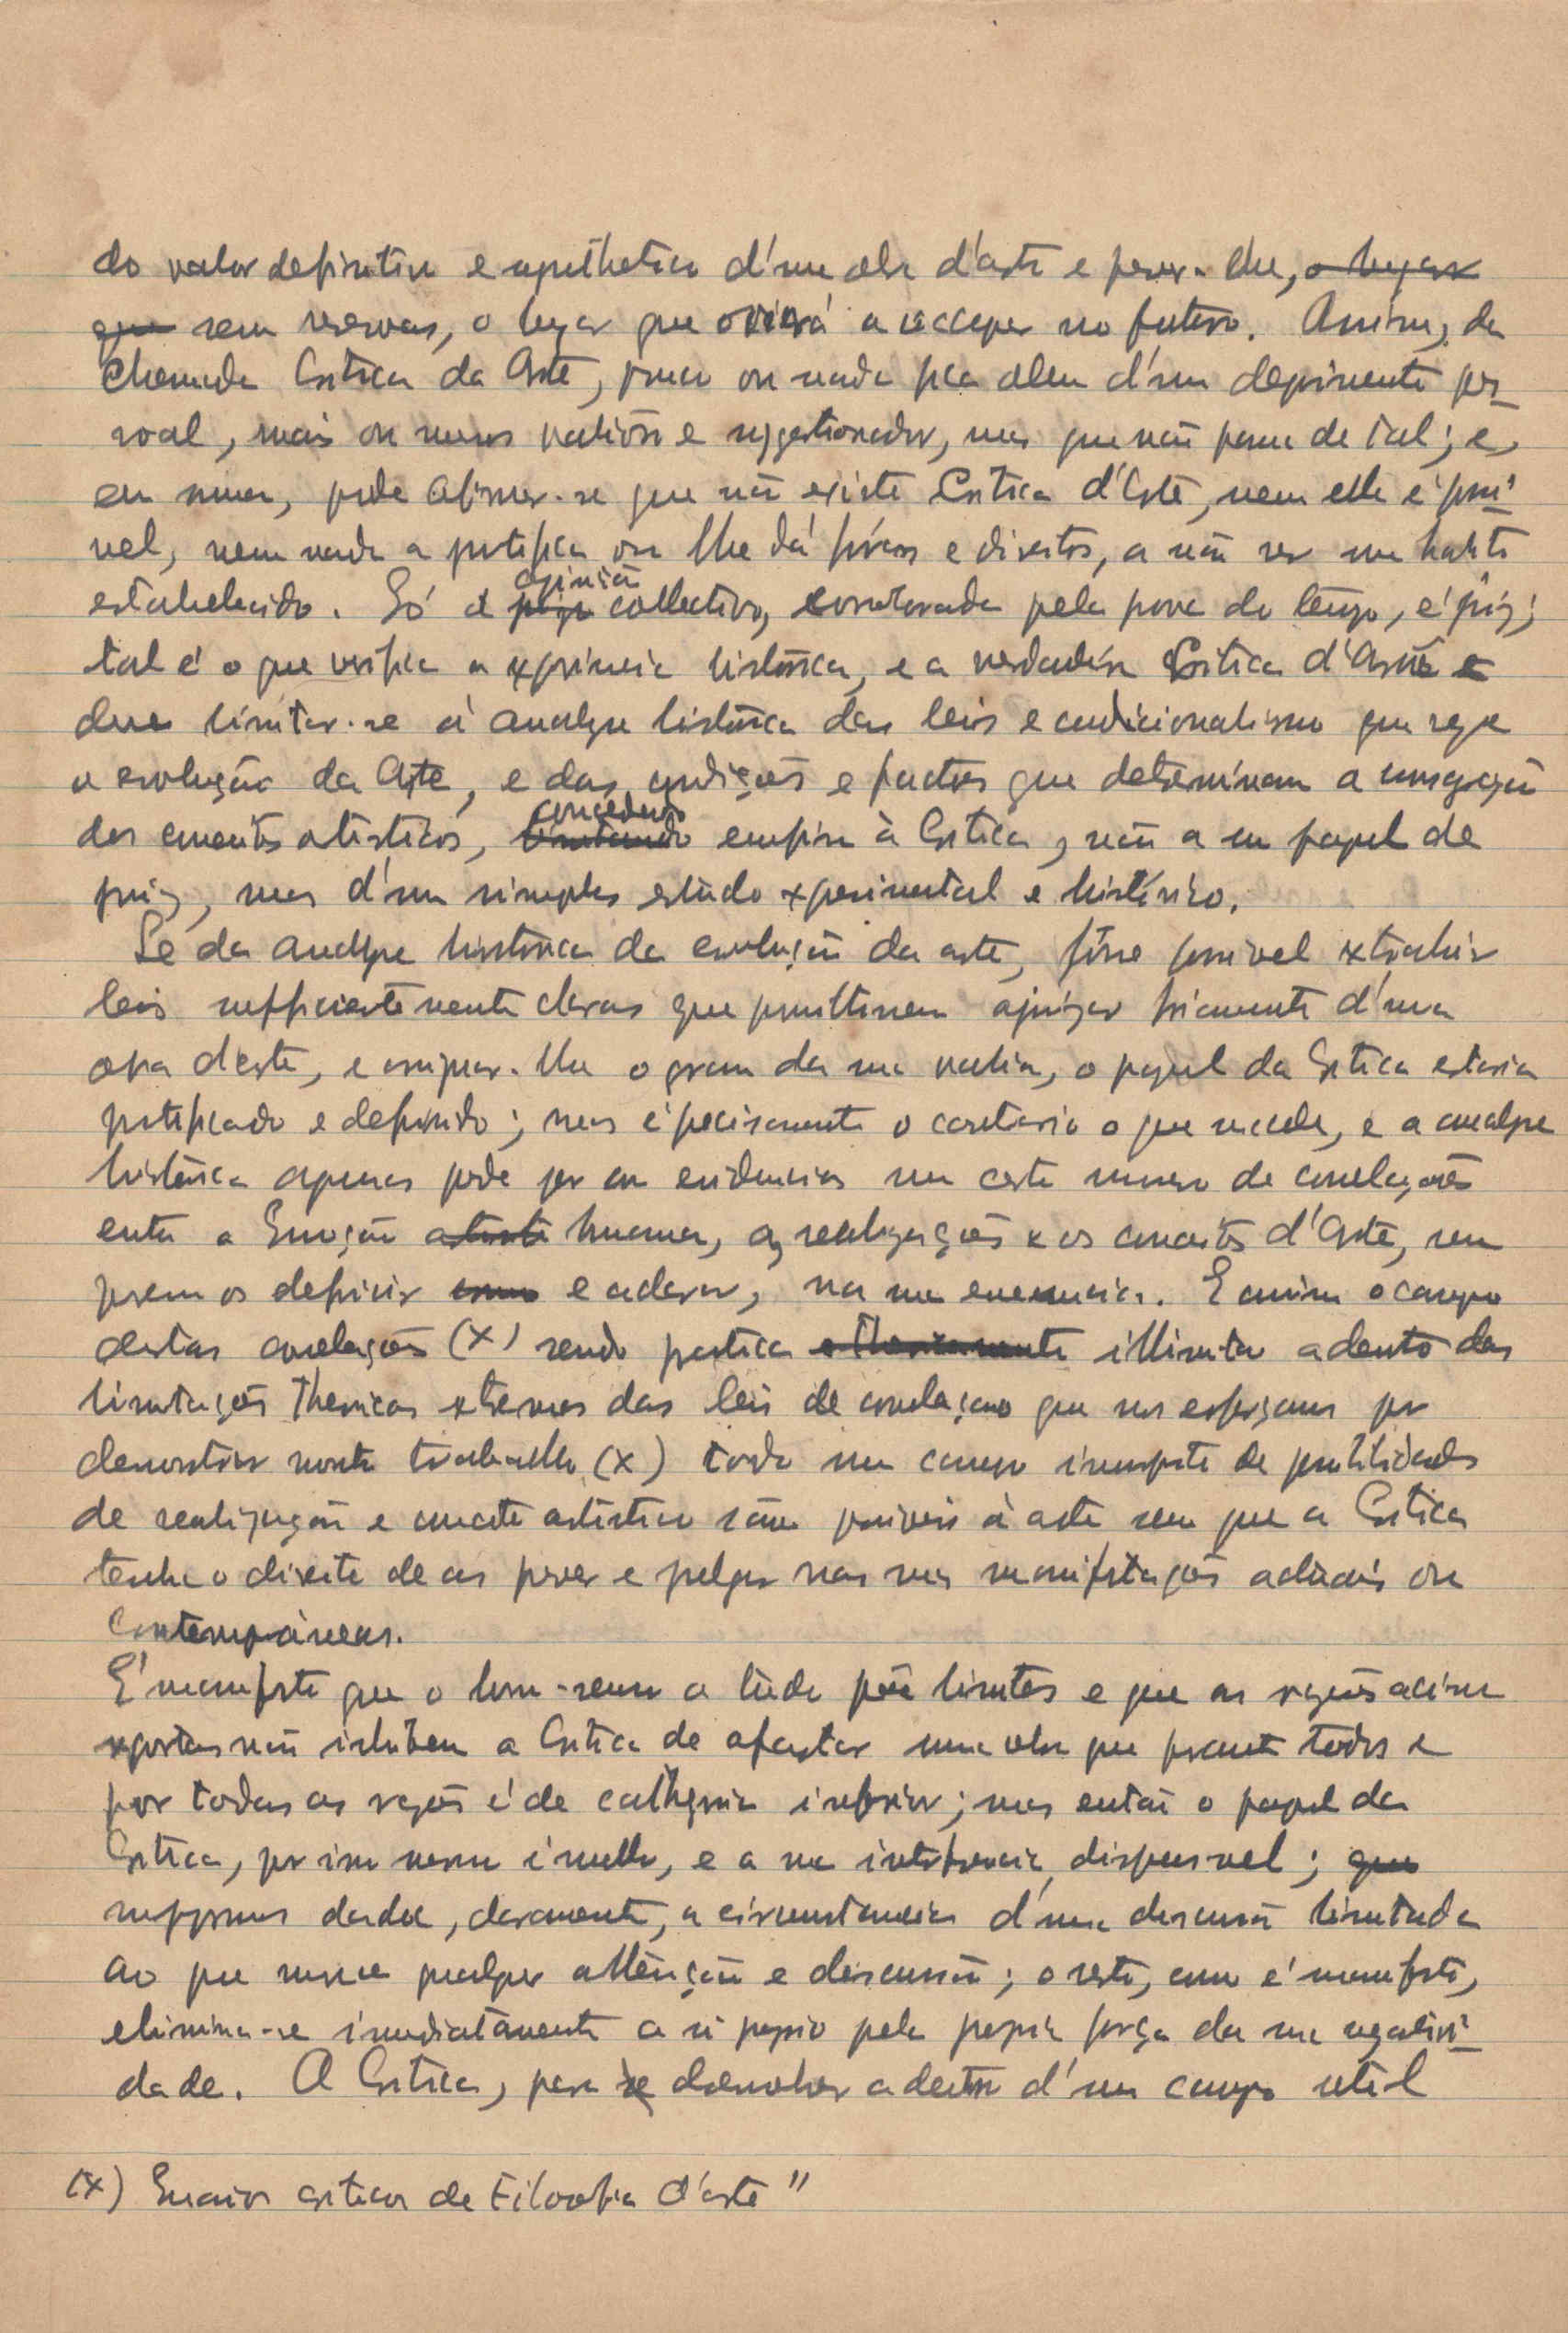 do valor definitivo e apothetico d'uma obra d'arte e prever-lhe, o lugar
que sem reservas, o lugar que o virá a occupar no futuro. Assim, da
chamada Critica da Arte, pouco ou nada fica alem d'um depoimento pes-
soal, mais ou menos valioso e suggestionador, mas que não passa de tal; e,
em summa, pode afirmar-se que não existe Critica d'Arte, nem ella é possi-
vel, nem nada a justifica ou lhe dá fóros e direitos, a não ser um habito
estabelecido. Só a opinião collectiva, corroborada pela prova do tempo, é juiz;
tal é o que verifica a experiencia historica, e a verdadeira Critica d'Arte
deve limitar-se á analyse historica das leis e condicionalismo que rege
a evolução da Arte, e das condições e factores que determinam a consagração
dos conceitos artisticos, concedendo emfim à Critica, não a um papel de
juiz, mas d'um simples estudo experimental e histórico.
Se da analyse historica da evolução da arte, fôsse possivel extrahir
leis sufficientemente claras que permittissem ajuizar friamente d'uma
obra d'arte, e assignar-lhe o grau da sua valia, o papel da Critica estaria
justificado e definido; mas é precisamente o contrario o que succede, e a analyse
histórica apenas pode pôr em evidencia um certo numero de correlações
entre a Emoção humana, as realizações e os conceitos d'Arte, sem
porem os definir e aclarar, na sua essencia. E assim o campo
destas correlações (x) sendo pratica illimitado adentro das
limitações theoricas extremas das leis de correlação que nos esforçamos por
demonstrar neste trabalho (x) todo um campo immenso de possibilidades
de realização e conceito artistico são possiveis á arte sem que a Critica
tenha o direito de as prever e julgar nas suas manifestações actuais ou
contemporâneas.
É manifesto que o bom-senso a tudo põe limites e que as razões acima
expostas não inhibem a Critica de afastar uma obra que perante todos e
por todas as razões é de cathegoria inferior; mas então o papel da
Critica, por isso mesmo é nullo, e a sua interferencia dispensavel; que
suppomos dada, claramente, a circumstancia d'uma discussão limitada
ao que merece qualquer attenção e discussão; o resto, como é manifesto,
elimina-se immediatamente a si proprio pela propria força da sua negativi-
dade. A Critica, para se desenvolver adentro d'um campo util
(x) Ensaios criticos de Filosofia d'arte"